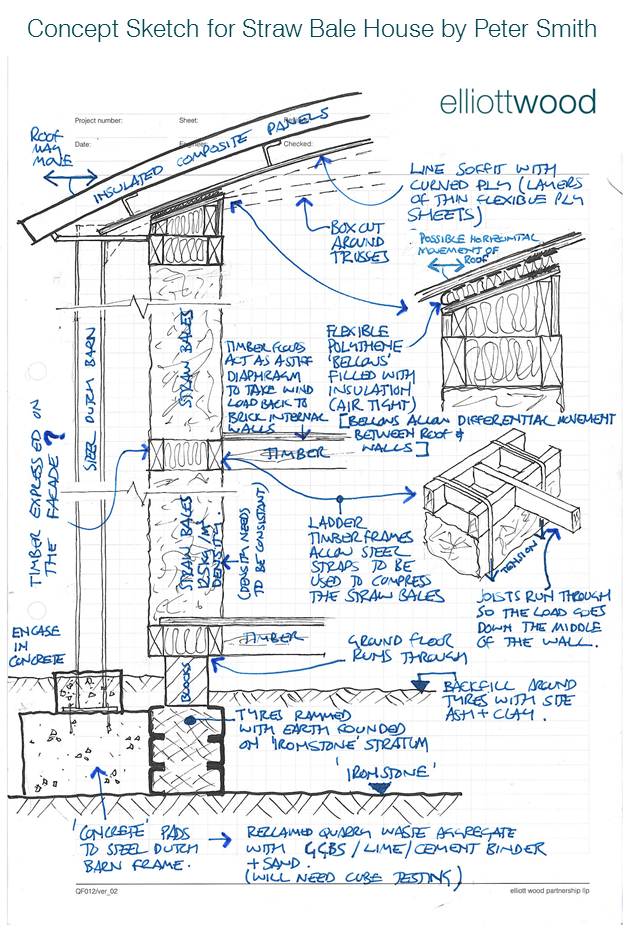 Concept Sketch for Straw Bale House by Peter Smith
elliottwood
Project number:
Sheet:
Date:
Checked:
ROOF
MAY
MOVE
INSULATED COMPOSITE PANELS
LINE SOFFIT WITH
CURVED PLY (LAYERS
OF THIN FLEXIBLE PLY
SHEETS)
BOX CUT
AROUND
TRUSSES
POSSIBLE HORIZONTAL
MOVEMENT OF
ROOF
STEEL DUTCH BARN
STRAW BALES
TIMBER FLOORS
ACT AS A STIFF
DIAPHRAGM
TO TAKE WIND
LOAD BACK TO
BRICK INTERNAL
WALLS
FLEXIBLE
POLYTHENE
'BELLOWS'
FILLED WITH
INSULATION
(AIR TIGHT)
[BELLOWS ALLOW DIFFERENTIAL MOVEMENT
BETWEEN ROOF &
WALLS]
TIMBER EXPRESSED ON
THE FACADE ?
TIMBER
STRAW BALES
125kg/m³
DENSITY.
(DENSITY NEEDS
TO BE CONSISTANT)
LADDER
TIMBER FRAMES
ALLOW STEEL
STRAPS TO BE
USED TO COMPRESS
THE STRAW BALES
TENSION
JOISTS RUN THROUGH
SO THE LOAD GOES
DOWN THE MIDDLE
OF THE WALL.
ENCASE
IN
CONCRETE
TIMBER
GROUND FLOOR
RUNS THROUGH
BLOCKS
BACKFILL AROUND
TYRES WITH SITE
ASH + CLAY.
TYRES RAMMED
WITH EARTH FOUNDED
ON 'IRONSTONE' STRATUM
'IRONSTONE'
'CONCRETE' PADS
TO STEEL DUTCH
BARN FRAME.
RECLAIMED QUARRY WASTE AGGREGATE
WITH GGBS / LIME / CEMENT BINDER
+ SAND.
(WILL NEED CUBE TESTING)
QF012/ver_02
elliott wood partnership llp